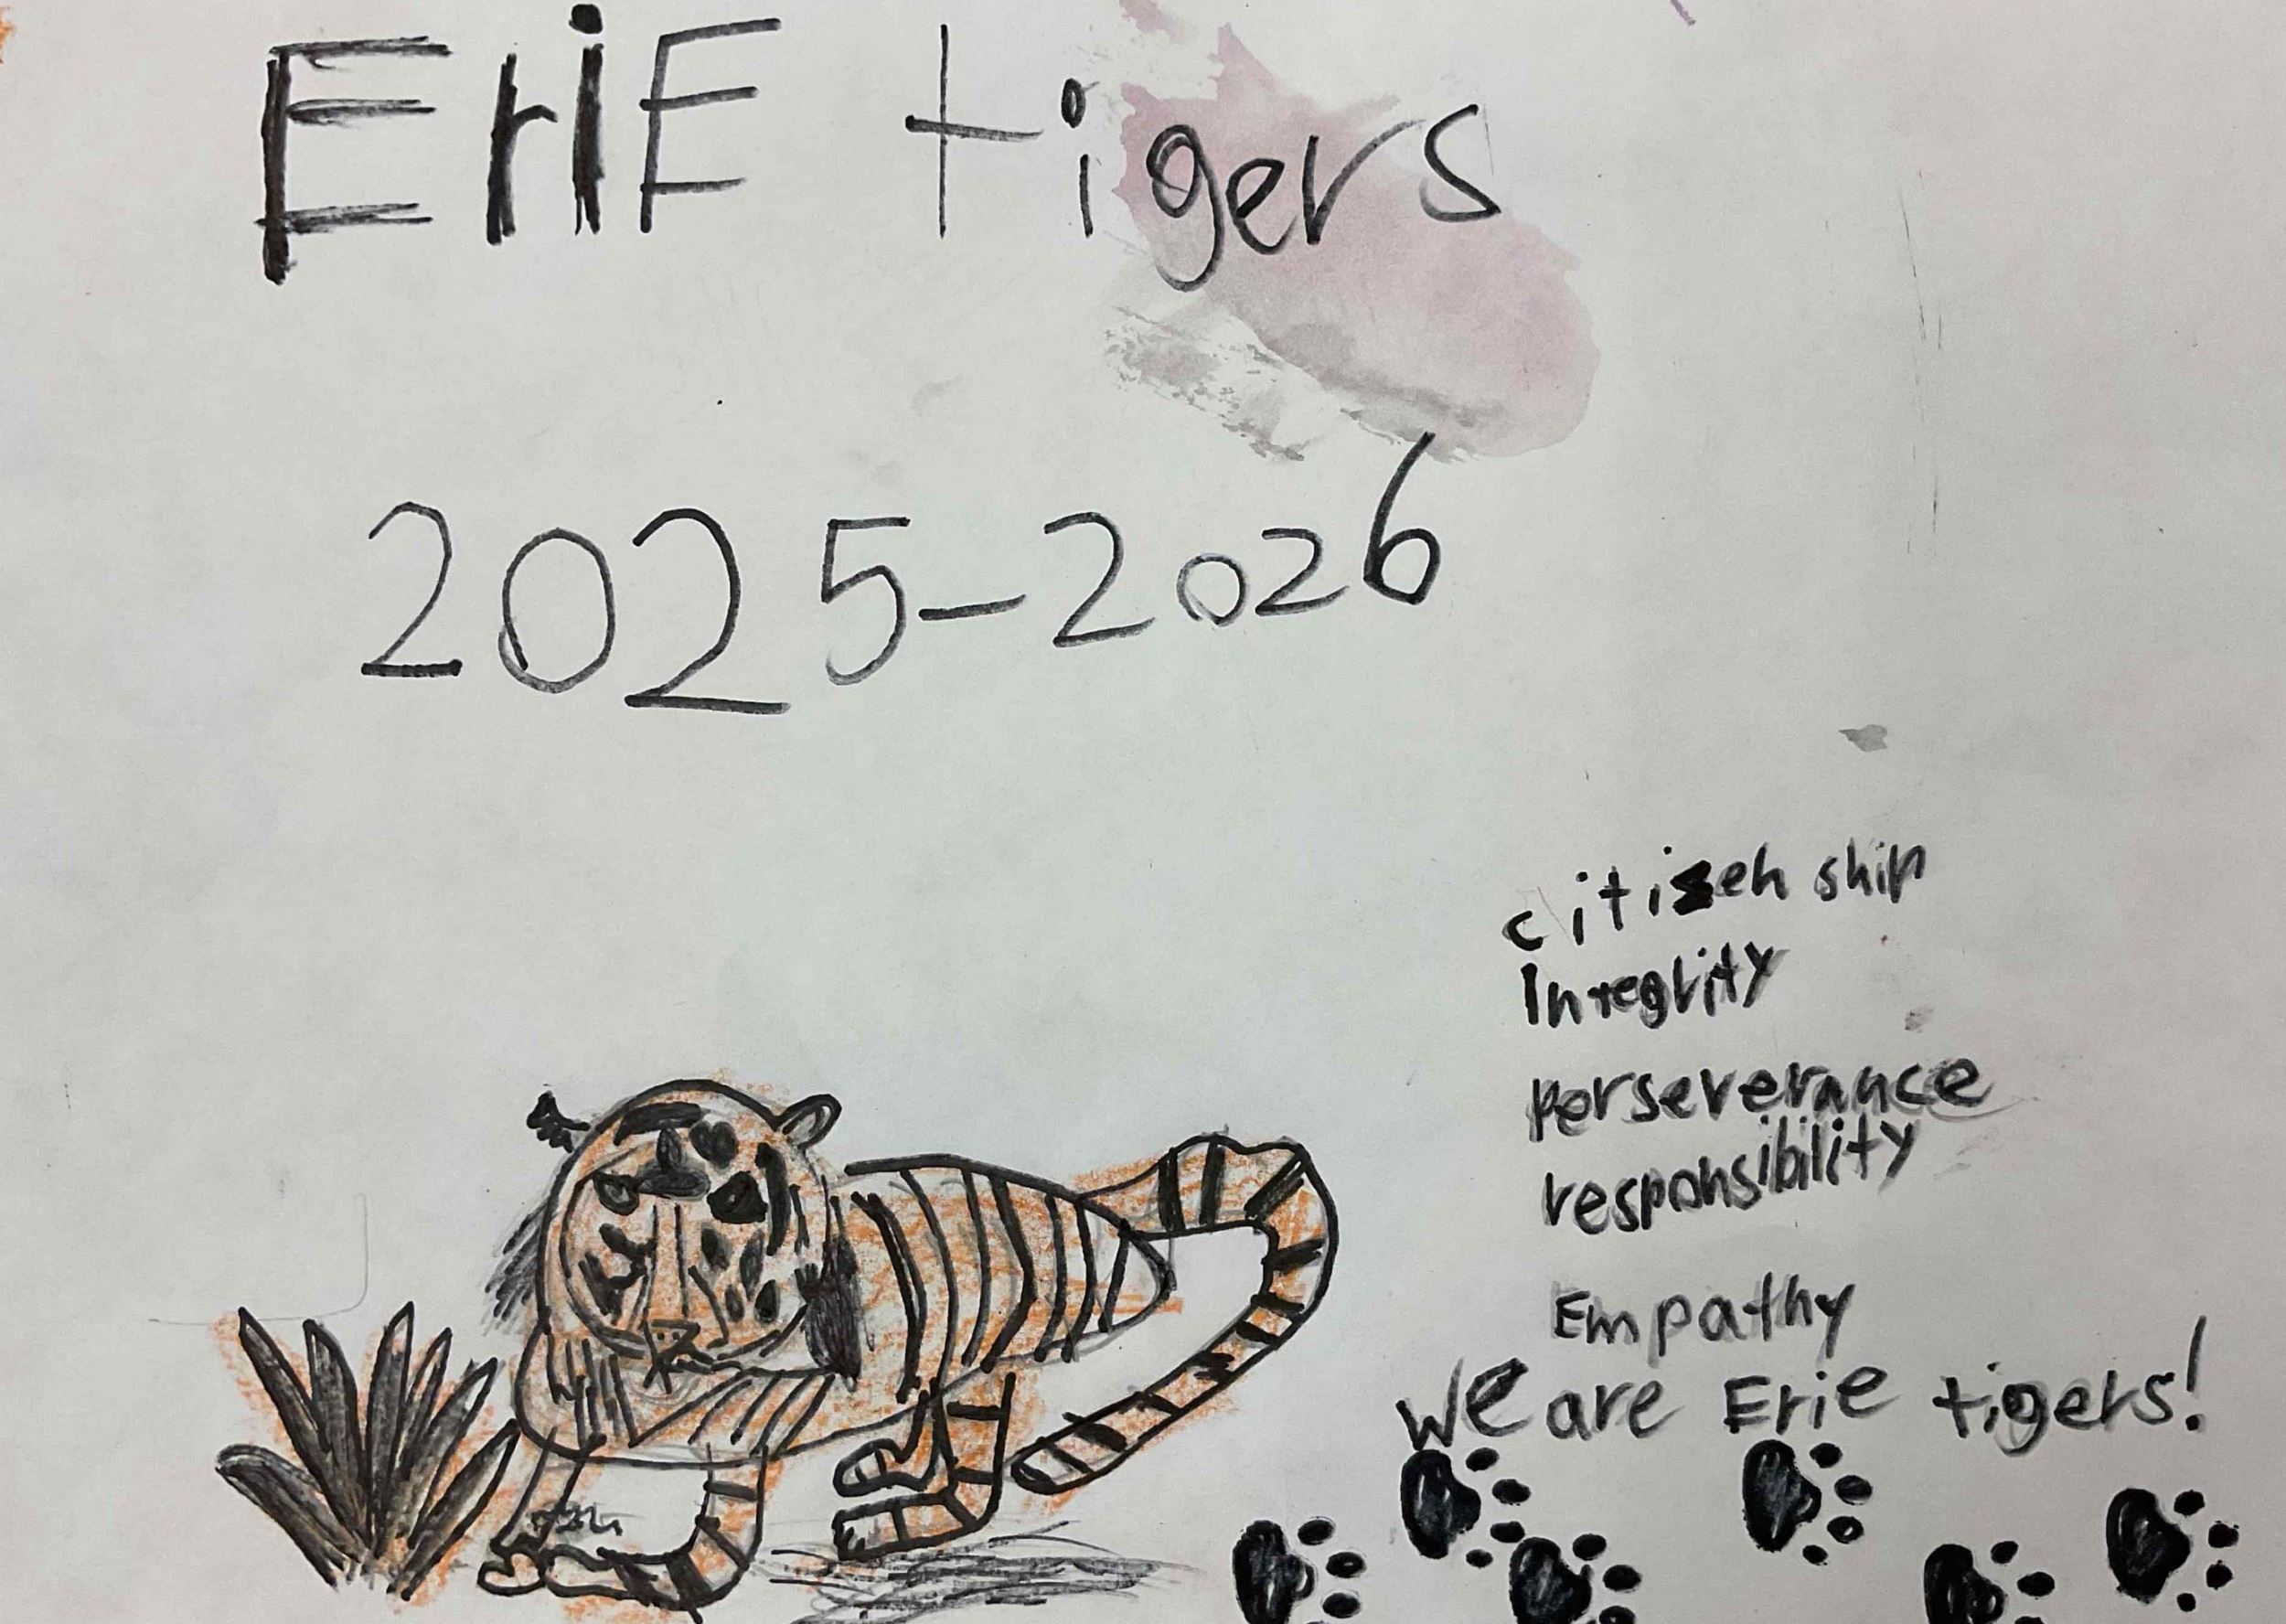 EriE tigers
2025-2026
citizen ship
Integrity
perseverance
responsibility
Empathy
We are Erie tigers!